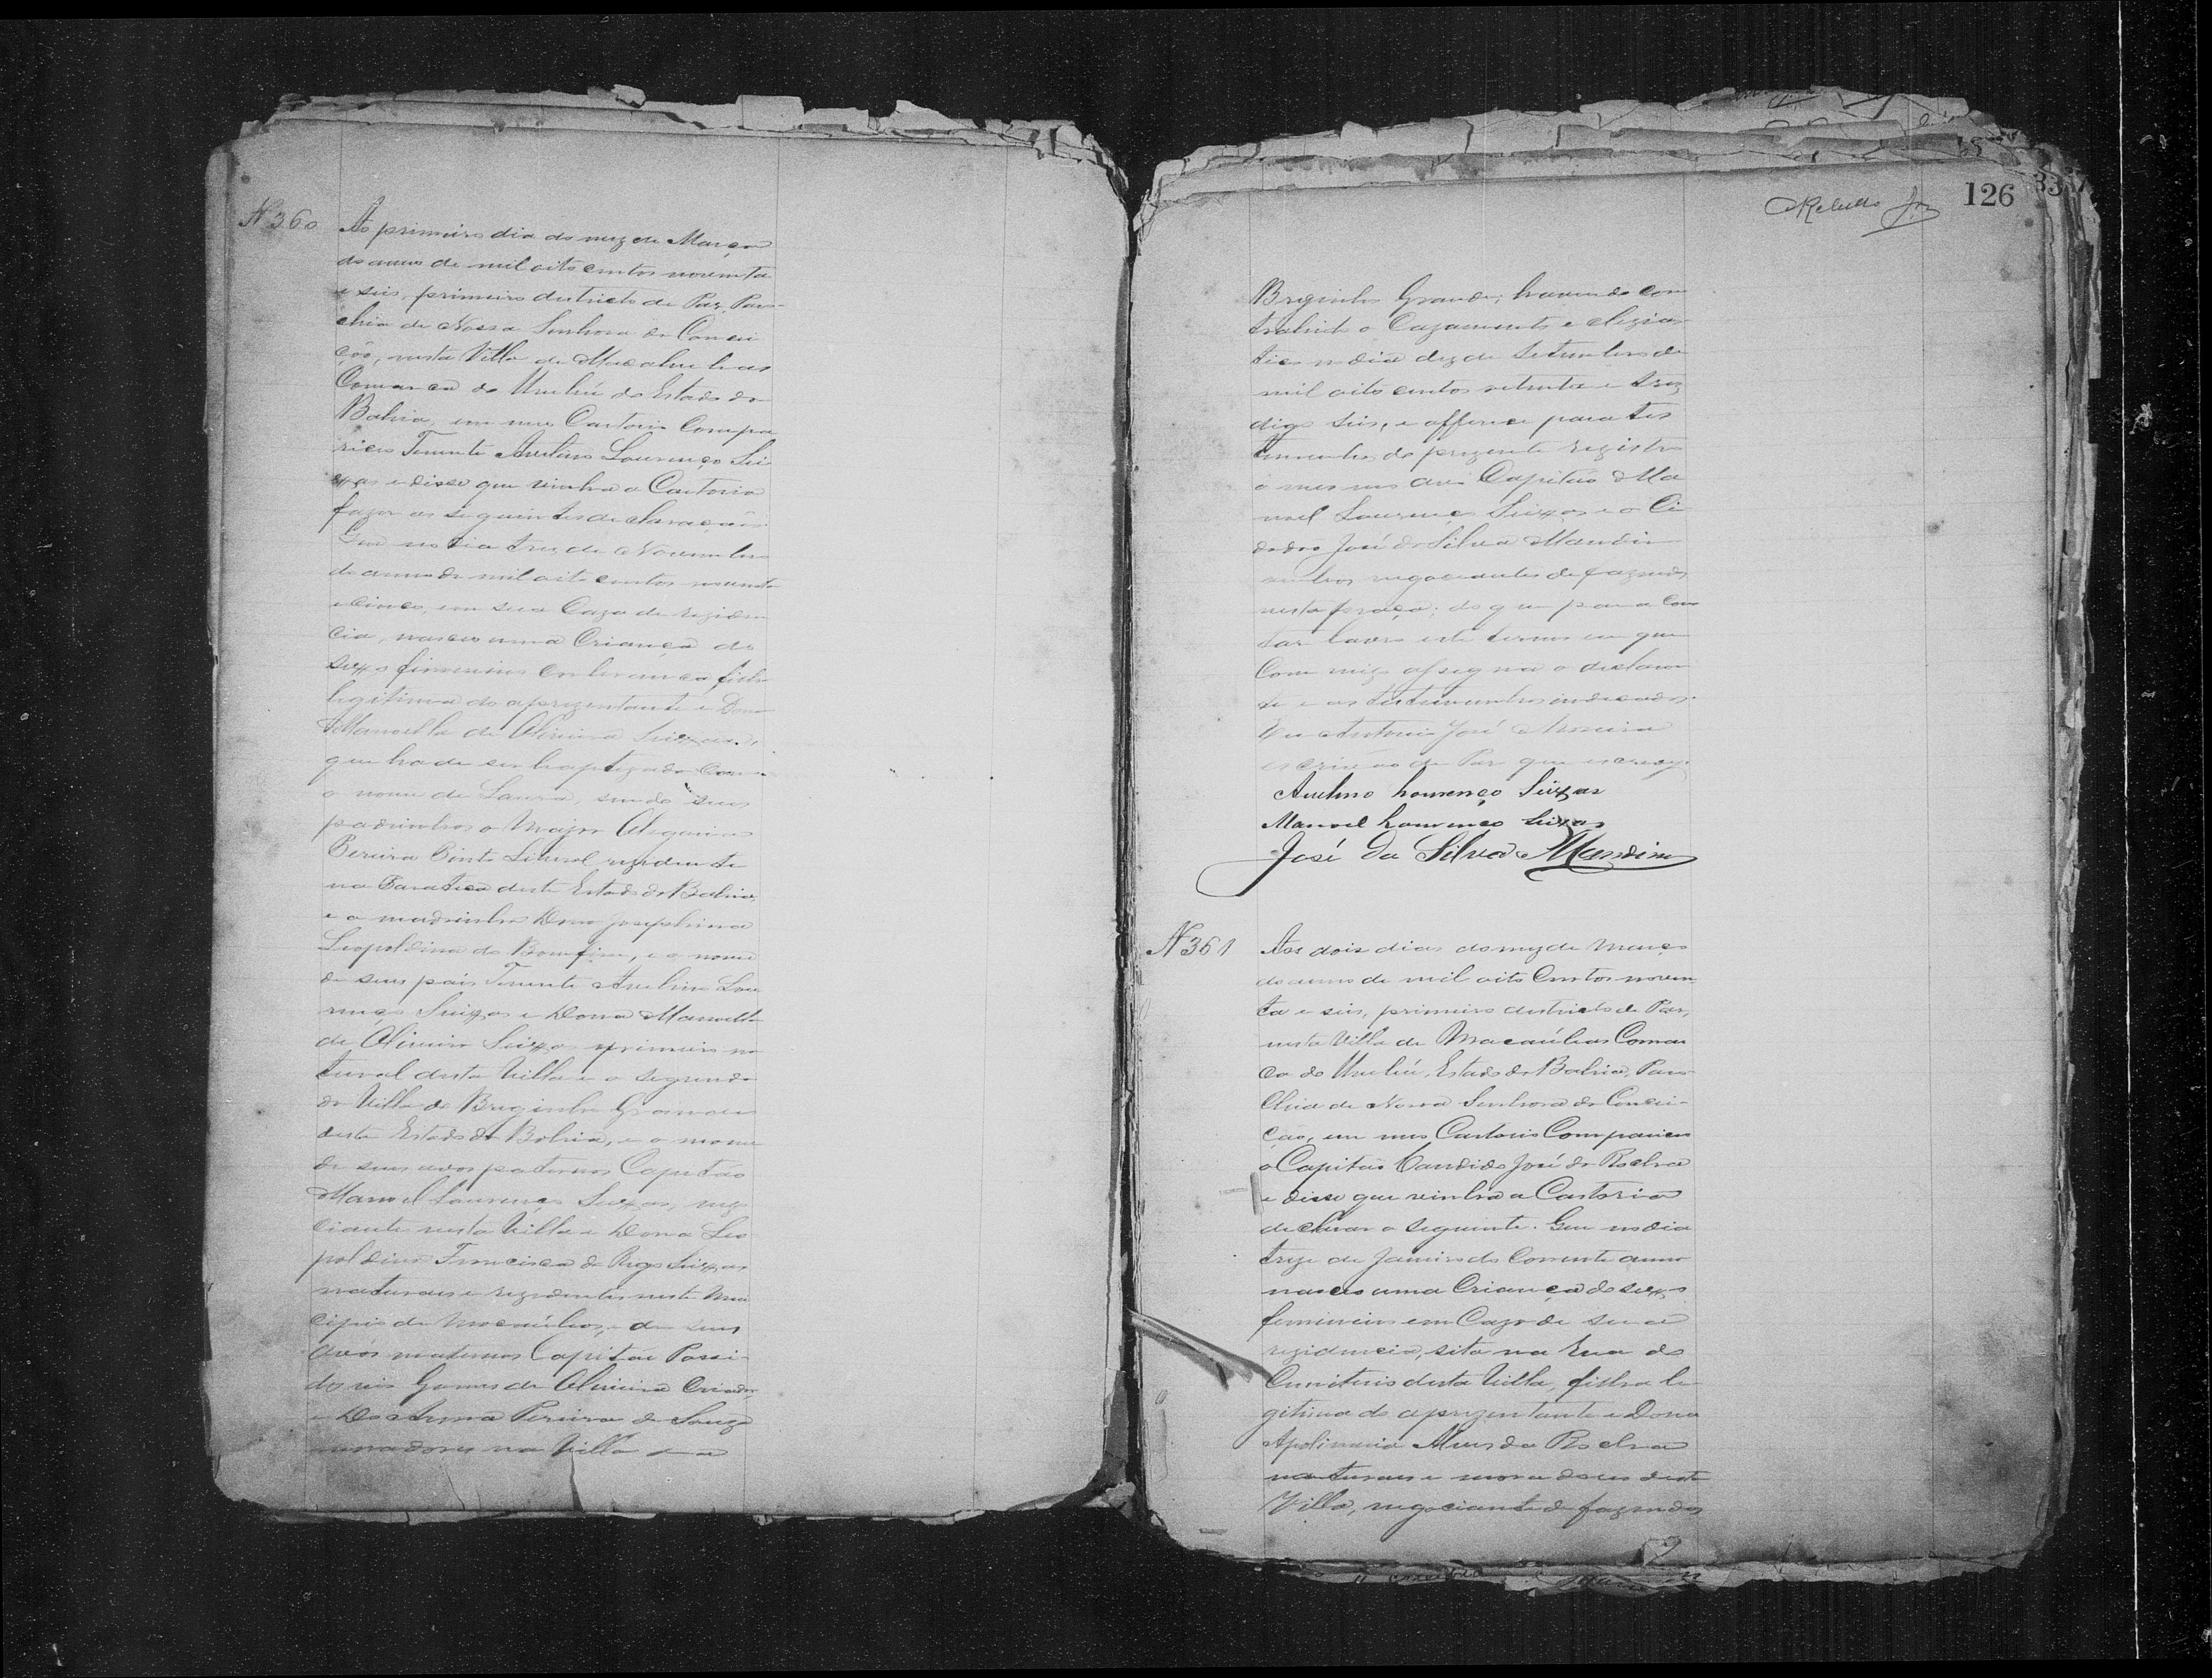 N 360
Ao primeiro dia do mez de Março
do anno de mil oito centos noventa
e seis, primeiro districto de Paz, Paro-
chia de Nossa Senhora da Concei
ção, nesta Villa de Macahubas
Comarca do Urubú do Estado da
Bahia, em meu Cartorio Compa
receo Tenente Avelino Lourenço Sei
xas e disse que vinha a Cartorio
fazer as seguintes declarações:
Que no dia tres de Novembro
do anno de mil oito centos noventa
e cinco, em sua Caza de reziden
cia, nasceo uma Criança do
sexo feminino cor branca, filha
legitima do aprezentante e Dona
Manoella de Oliveira Seixas,
que ha de ser baptizada com
o nome de Laura, sendo seus
padrinhos o Major
Pereira Pinto rezidente
na deste Estado da Bahia,
e a madrinha Dona Josephina
Leopoldina do Bomfim, e o nome
de seus pais Tenente Avelino Lou
renço Seixas e Dona Manoella
de Oliveira Seixas, o primeiro na
tural desta Villa e a segunda
da Villa do Brejinho Grande
deste Estado da Bahia, e o nome
de seus avos paternos Capitão
Manoel Lourenço Seixas, nego
ciante nesta Villa e Dona Leo
poldina Francisca do Rego Seixas
naturaes e rezidentes neste Mu
cipio de Macaúbas, e de seus
avós maternos Capitão Possi
donio Gomes de Oliveira Criador,
e Do Anna Pereira de Souza
moradores na Villa do
126
Rebello Jr
Brejinho Grande; havendo con
trahido o Cazamento eclezias
tico no dia dez de Setembro de
mil oito centos oitenta e trez
digo seis, e offerece para tes
temunhas do prezente registro
o mesmo avô Capitão Ma
noel Lourenço Seixas e o Ci
dadão José da Silva Mandim
ambos negociantes de fazendas
nesta praça; do que para cons
tar lavro este termo em que
Comigo assigna o declaran
te e as testemunhas indicadas.
Eu Antonio José Moreira
escrivão de Paz que escrevy.
Avelino Lourenço Seixas
Manoel Lourenço Seixas
José Da Silva Mandim
N 361
Aos dois dias do mez de Março
do anno de mil oito Centos noven
ta e seis, primeiro districto de Paz,
nesta Villa de Macaúbas Comar
ca do Urubú, Estado da Bahia, Paro
chia de Nossa Senhora da Concei-
ção, em meu Cartorio Compareceo
o Capitão Candido José da Rocha
e disse que vinha a Cartorio
declarar o seguinte. Que no dia
treze de Janeiro do Corrente anno
nasceo uma Criança do sexo
feminino em Caza de sua
rezidencia, sita na rua do
Cemiterio desta Villa, filha le
gitima do aprezentante e Dona
Apolinaria Alves da Rocha
naturaes e moradores desta
Villa, negociante de fazendas